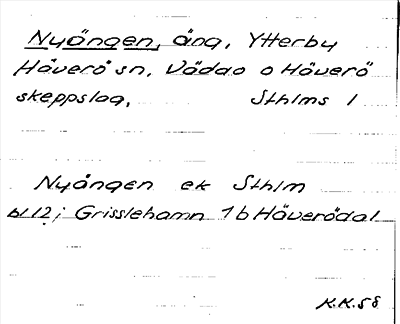 Nyängen, äng, Ytterby
Häverö sn, Väddö o Häverö
skeppslag, Sthlms l
Nyängen ek Sthlm
bl 12; Grisslehamn 1b Häverödal
K.K. 58